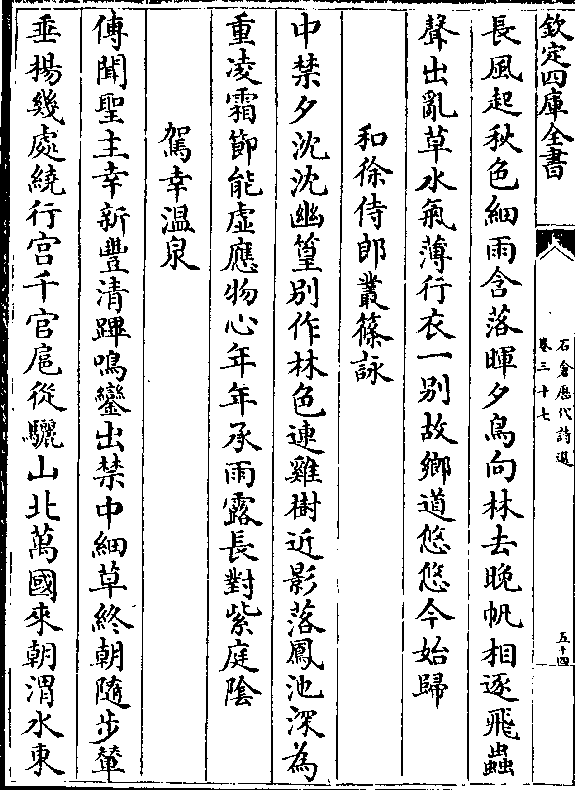 欽定四庫全書
石倉歷代詩選
卷三十七
五十四
長風起秋色細雨含落暉夕鳥向林去晚帆相逐飛蟲
聲出亂草水氣薄行衣一別故鄉道悠悠今始歸
和徐侍郎叢篠詠
中禁夕沈沈幽篁別作林色連雞樹近影落鳳池深為
重凌霜節能虛應物心年年承雨露長對紫庭陰
駕幸溫泉
傳聞聖主幸新豐清蹕鳴鑾出禁中細草終朝隨步輦
垂楊幾處繞行宮千官扈從驪山北萬國來朝渭水東